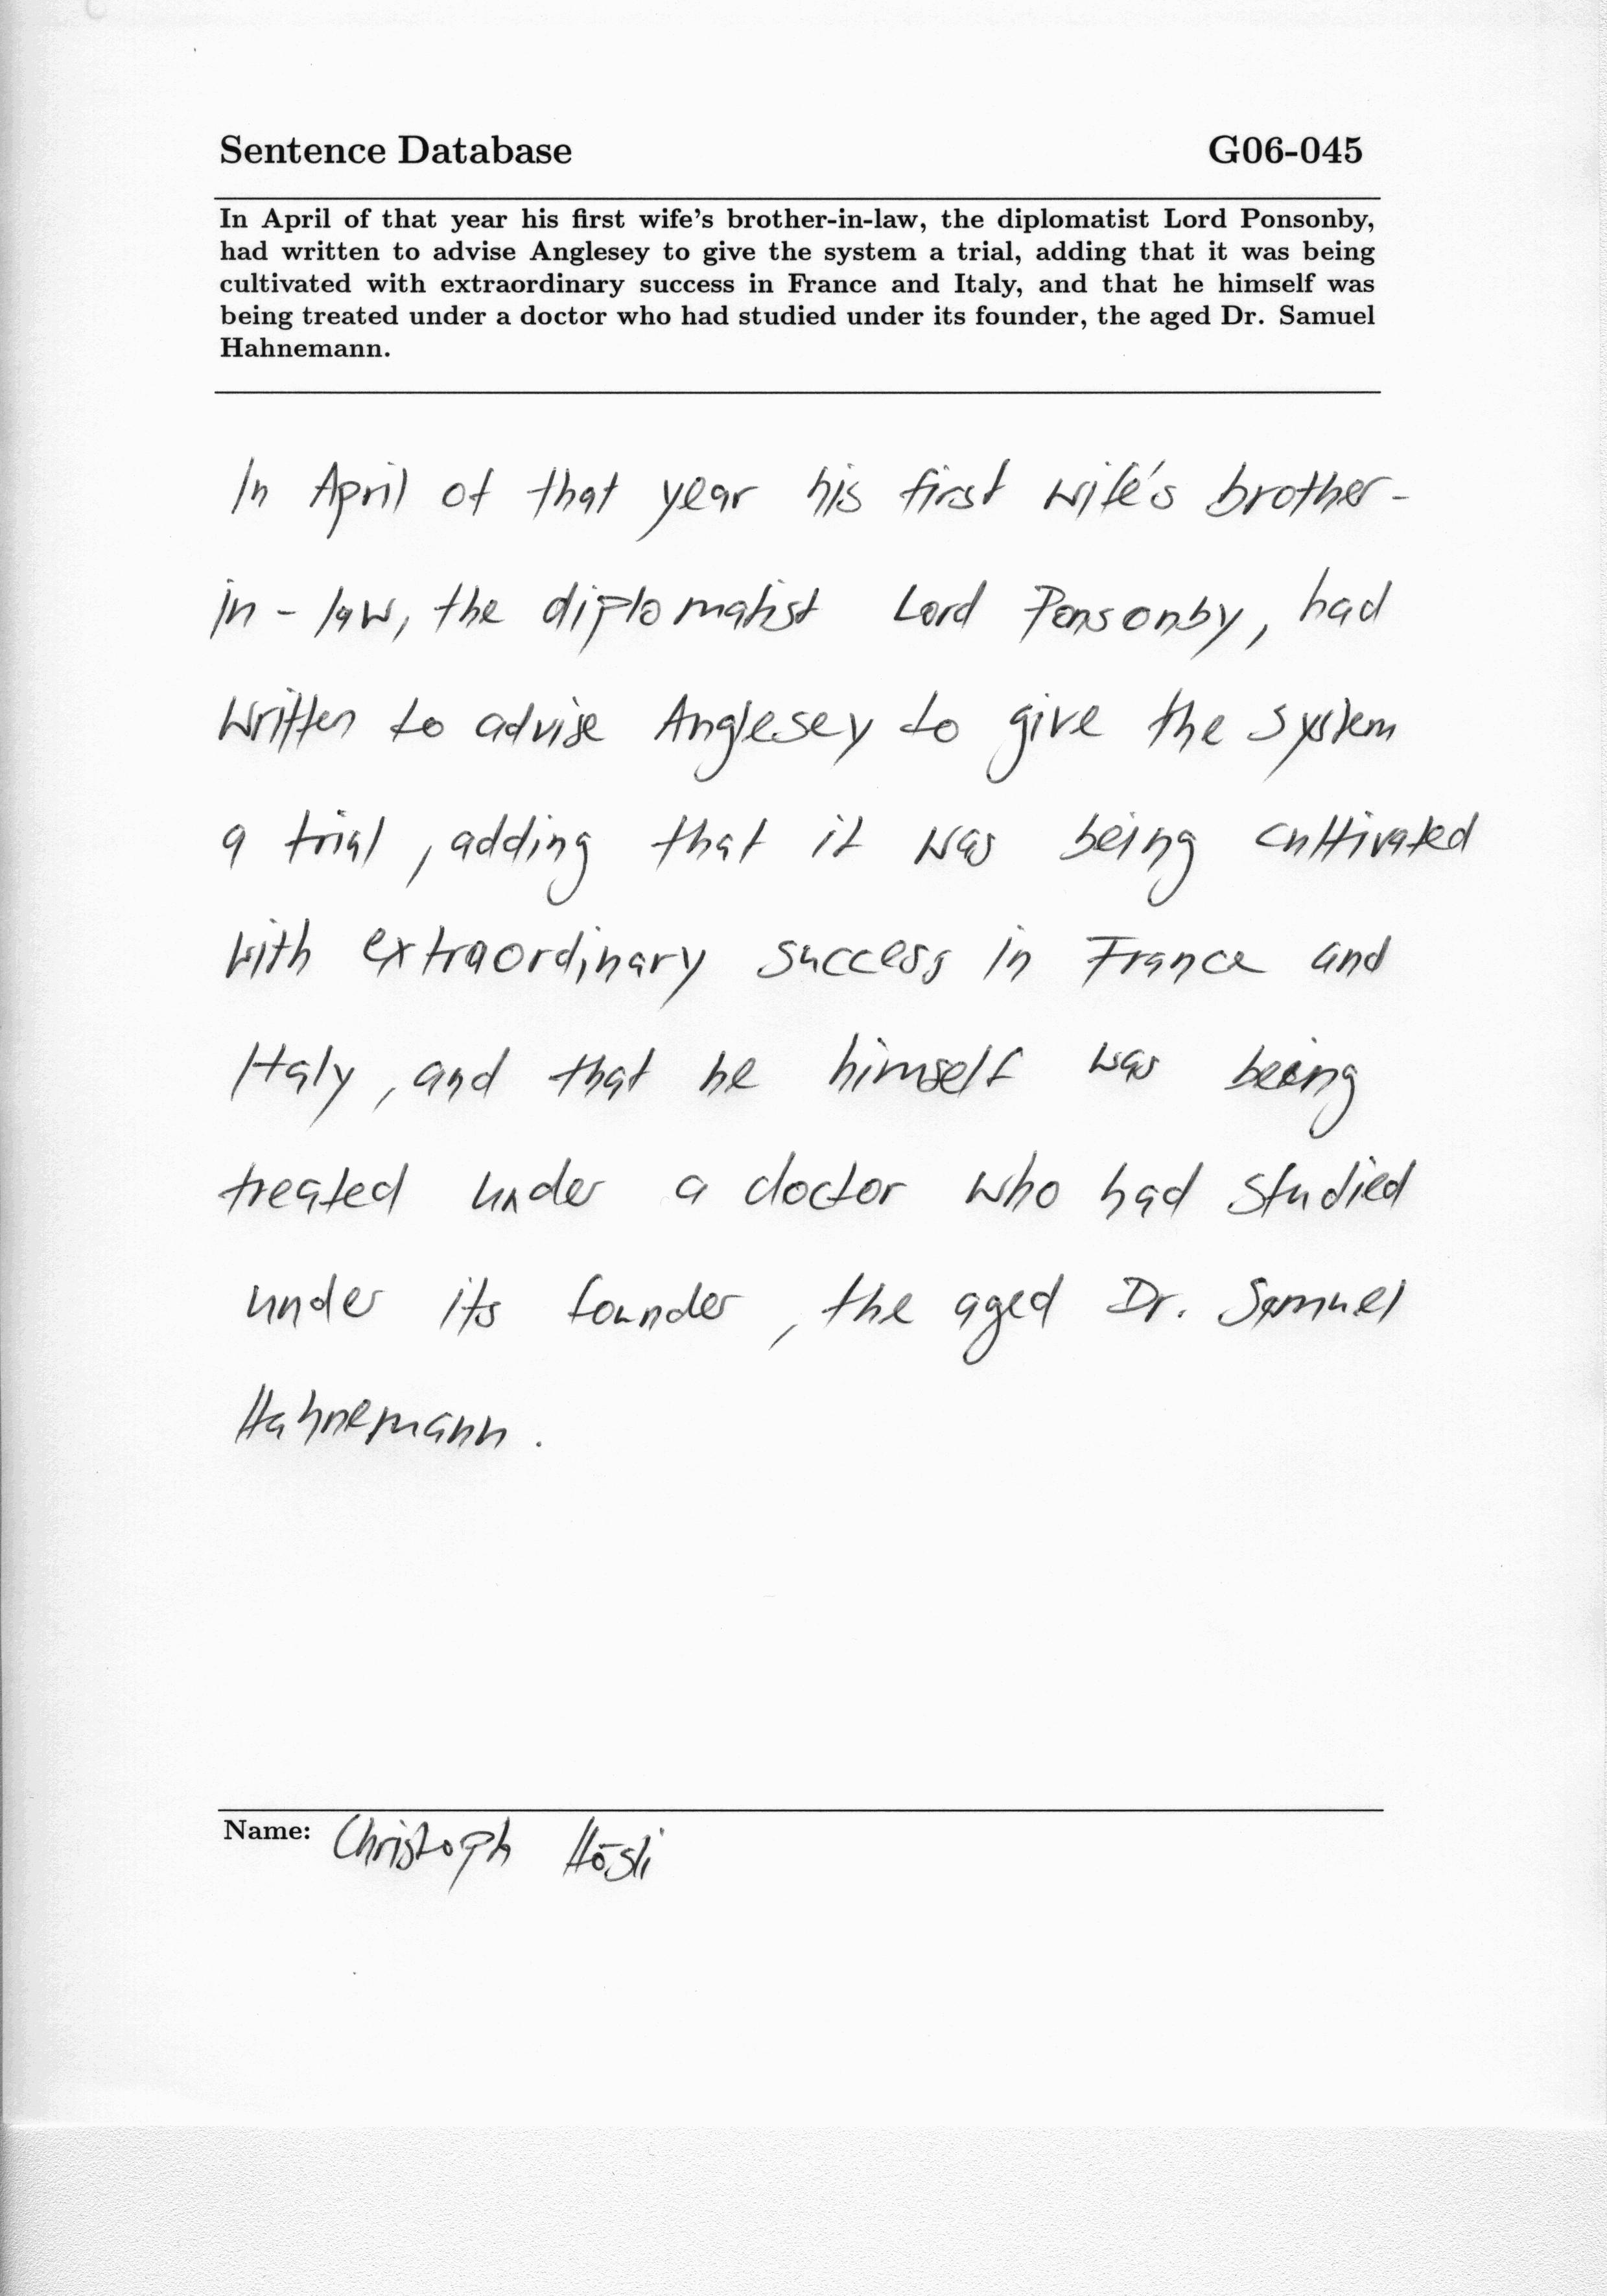 Sentence Database G06-045
In April of that year his first wife's brother-in-law, the diplomatist Lord Ponsonby,
had written to advise Anglesey to give the system a trial, adding that it was being
cultivated with extraordinary success in France and Italy, and that he himself was
being treated under a doctor who had studied under its founder, the aged Dr. Samuel
Hahnemann.
In April of that year his first wife's brother-
in-law, the diplomatist Lord Ponsonby, had
written to advise Anglesey to give the system
a trial, adding that it was being cultivated
with extraordinary success in France and
Italy, and that he himself was being
treated under a doctor who had studied
under its founder, the aged Dr. Samuel
Hahnemann.
Name: Christoph Hösli